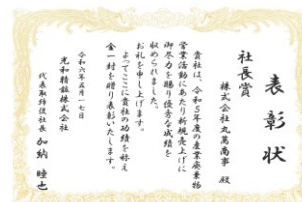 表彰状
社長賞
株式会社丸萬商事 殿
貴社は、令和5年度の産業廃棄物
営業活動にあたり新規売上げに
御尽力を賜り優秀な成績を
収められました。
お礼を申し上げます。
よってここに貴社の功績を称え
金一封を贈り表彰いたします。
令和六年五月一七日
光和精鉱株式会社
代表取締役社長 加納 睦也